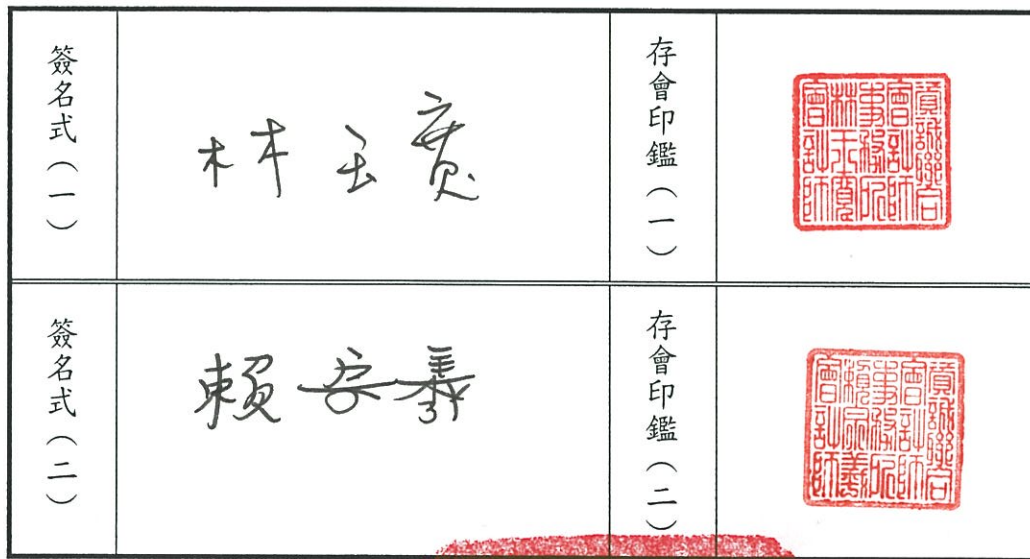 簽名式（一）
林玉寬
存會印鑑（一）
資誠聯合
會計師
事務所
林玉寬
會計師
簽名式（二）
賴宗羲
存會印鑑（二）
資誠聯合
會計師
事務所
賴宗羲
會計師